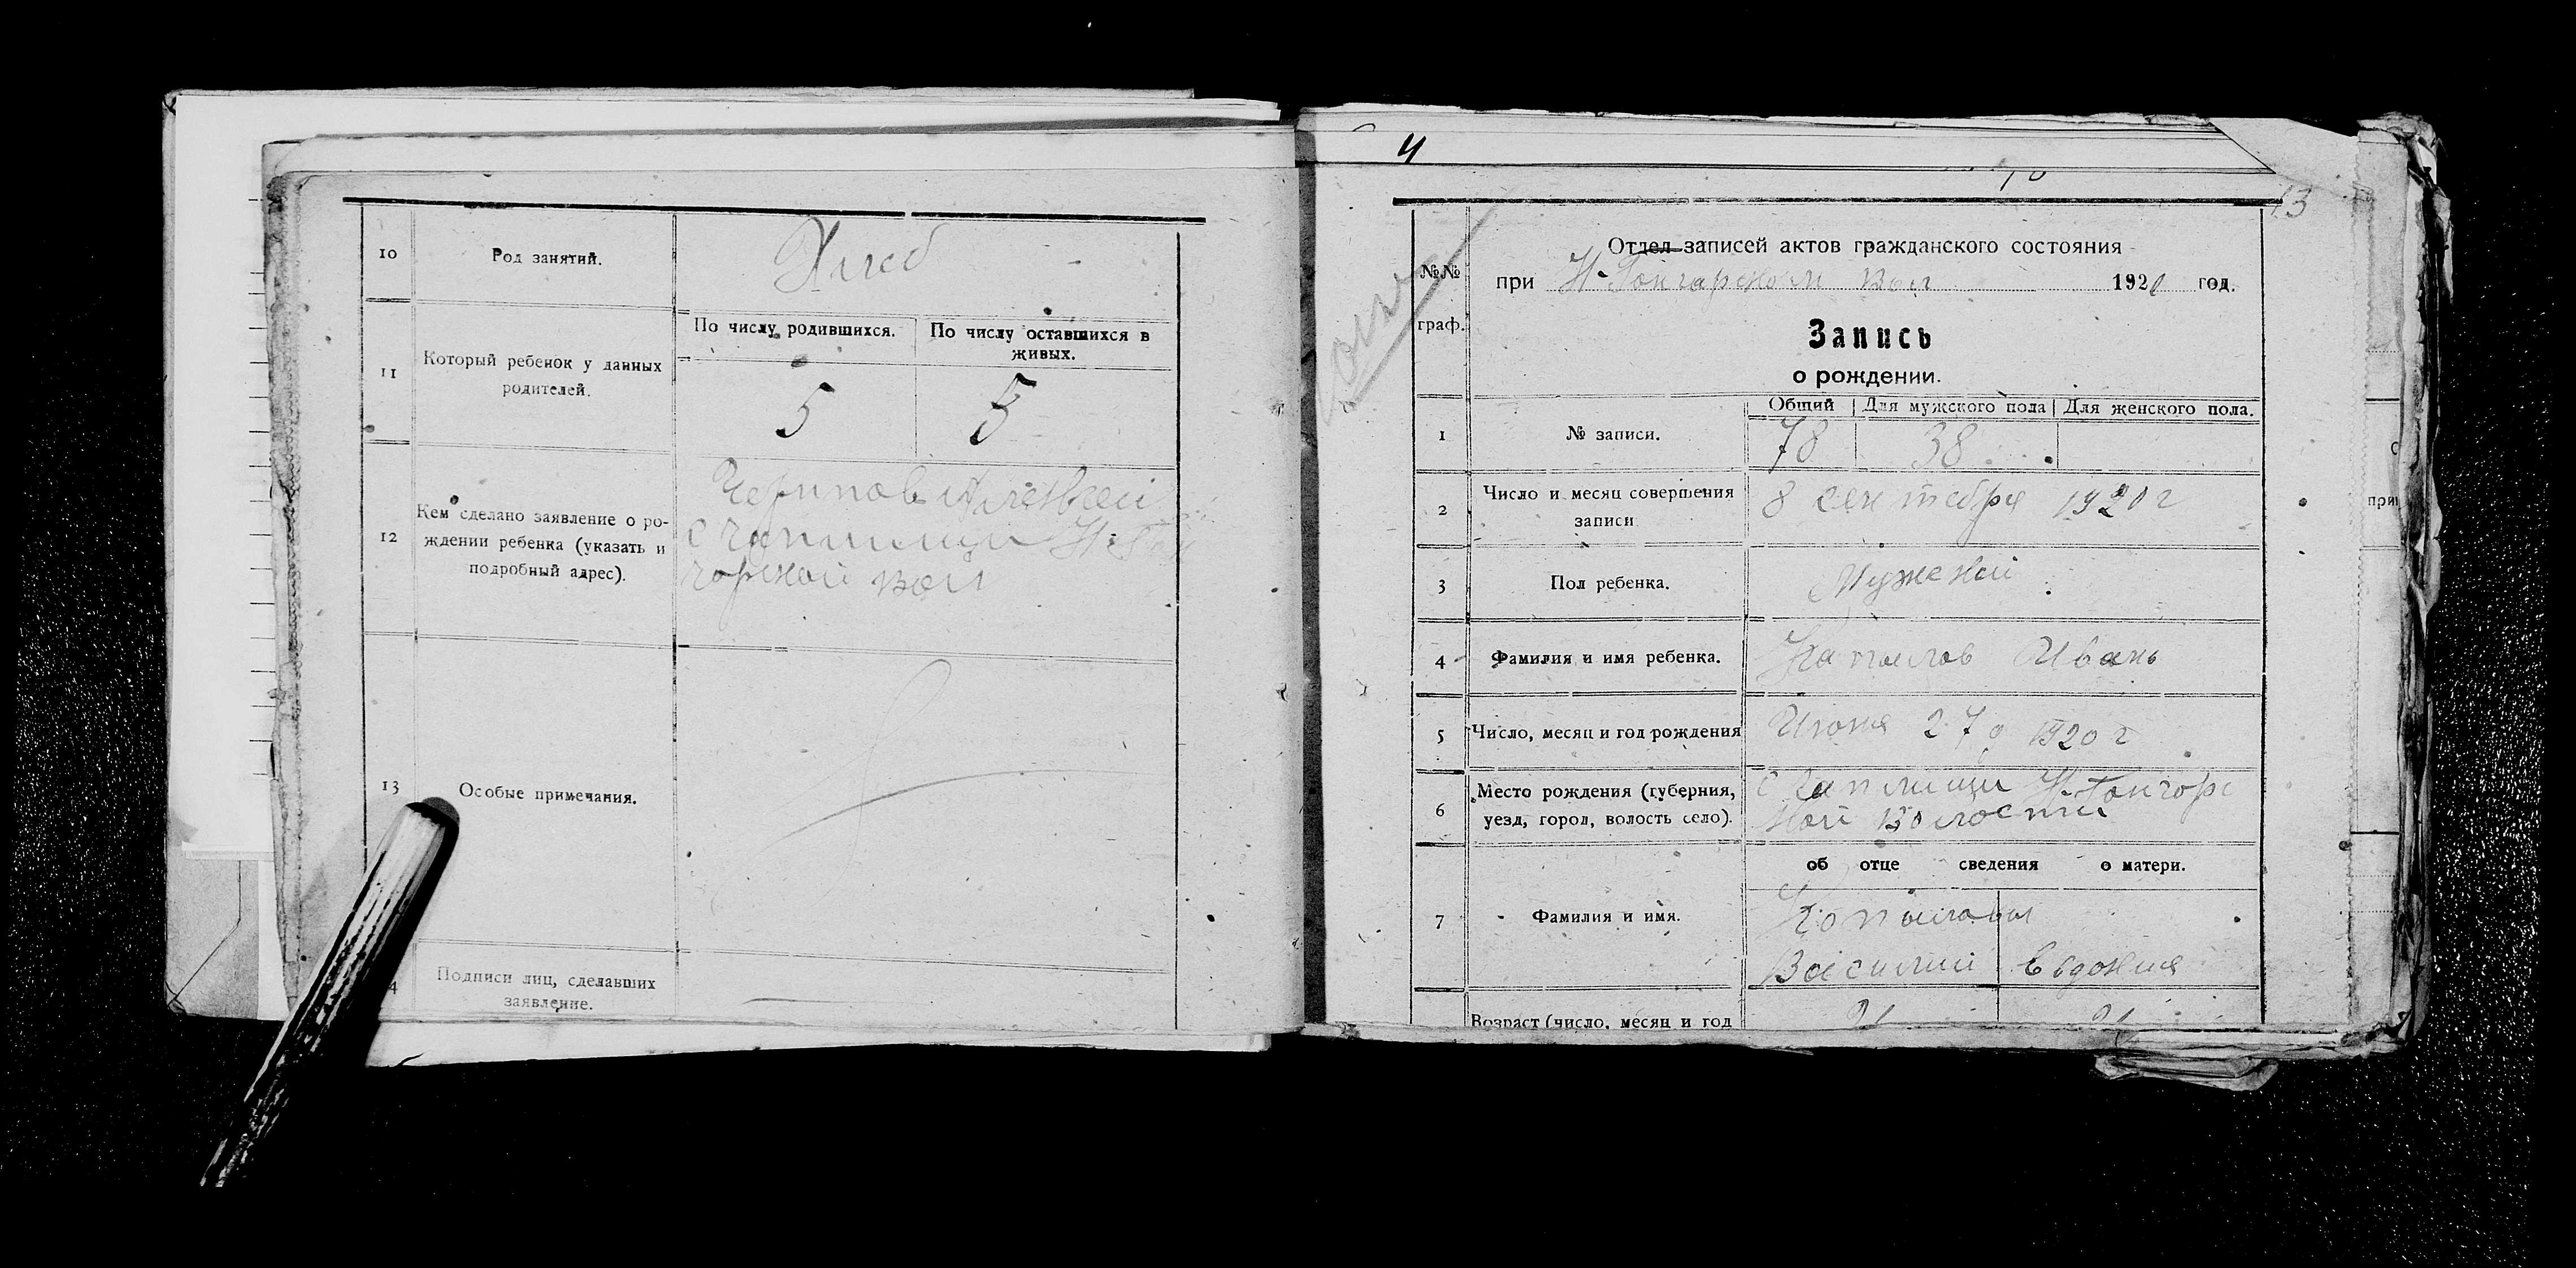 10
Род занятий.
Хлеб
11
Который ребенок у данных
родителей.
По числу родившихся.
По числу оставшихся в
живых.
5
5
12
Кем сделано заявление о ро-
ждении ребенка (указать и
подробный адрес).
Алексей
вол
13
Особые примечания.
4
Подписи лиц, сделавших
заявление.
4
13
№№
граф.
Отдел записей актов гражданского состояния
при Н-Гончарском вол 1920 год.
Запись
о рождении.
Общий Для мужского пола Для женского пола.
1
№ записи.
78 38
2
Число и месяц совершения
записи
8 сентября 1920 г
3
Пол ребенка.
Мужской
4
Фамилия и имя ребенка.
Иванъ
5
Число, месяц и год рождения
27 1920 г
6
Место рождения (губерния,
уезд, город, волость село).
с Н-Гончарс
кой волости
об отце сведения о матери.
7
Фамилия и имя.
Василий Евдокия
Возраст (число, месяц и год